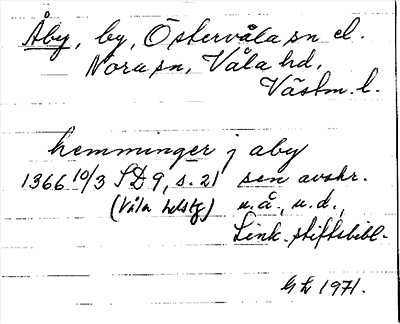 Åby, by, Östervåla sn el.
Nora sn, Våla hd,
Västm. l.
hemminger j aby
1366 10/3 SD 9, s. 21 sen avskr.
(Våla hdstg) u.å., u.d.,
Link. stiftsbibl.
1971.